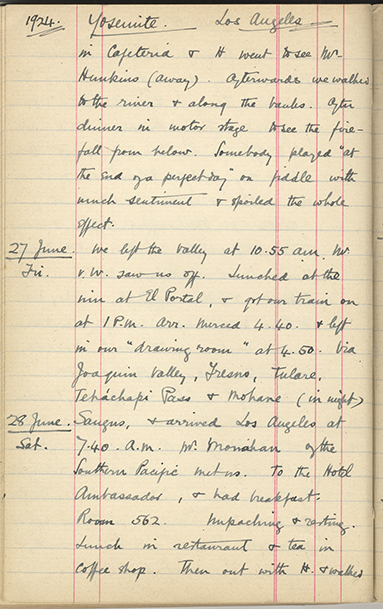 1924. Yosemite. Los Angeles
in Cafeteria & H went to see Mr
Hunkins (away). Afterwards we walked
to the river & along the banks. After
dinner in motor stage to see the fire-
fall from below. Somebody played "at
the End of a perfect day" on fiddle with
much sentiment & spoiled the whole
effect.
27 June. We left the Valley at 10.55 am. Mr.
Fri. v. W. saw us off. Lunched at the
inn at El Portal, & got our train on
at 1 P.M. Arr. Merced 4.40. & left
in our "drawing room" at 4.50. Via
Joaquin Valley, Fresno, Tulare,
Tehachapi Pass & Mohave (in night)
28 June. Saugus, & arrived Los Angeles at
Sat. 7.40. A.M. Mr. Monahan of the
Southern Pacific met us. To the Hotel
Ambassador, & had breakfast.
Room 562. Unpacking & resting.
Lunch in restaurant & tea in
Coffee shop. Then out with H. & walked